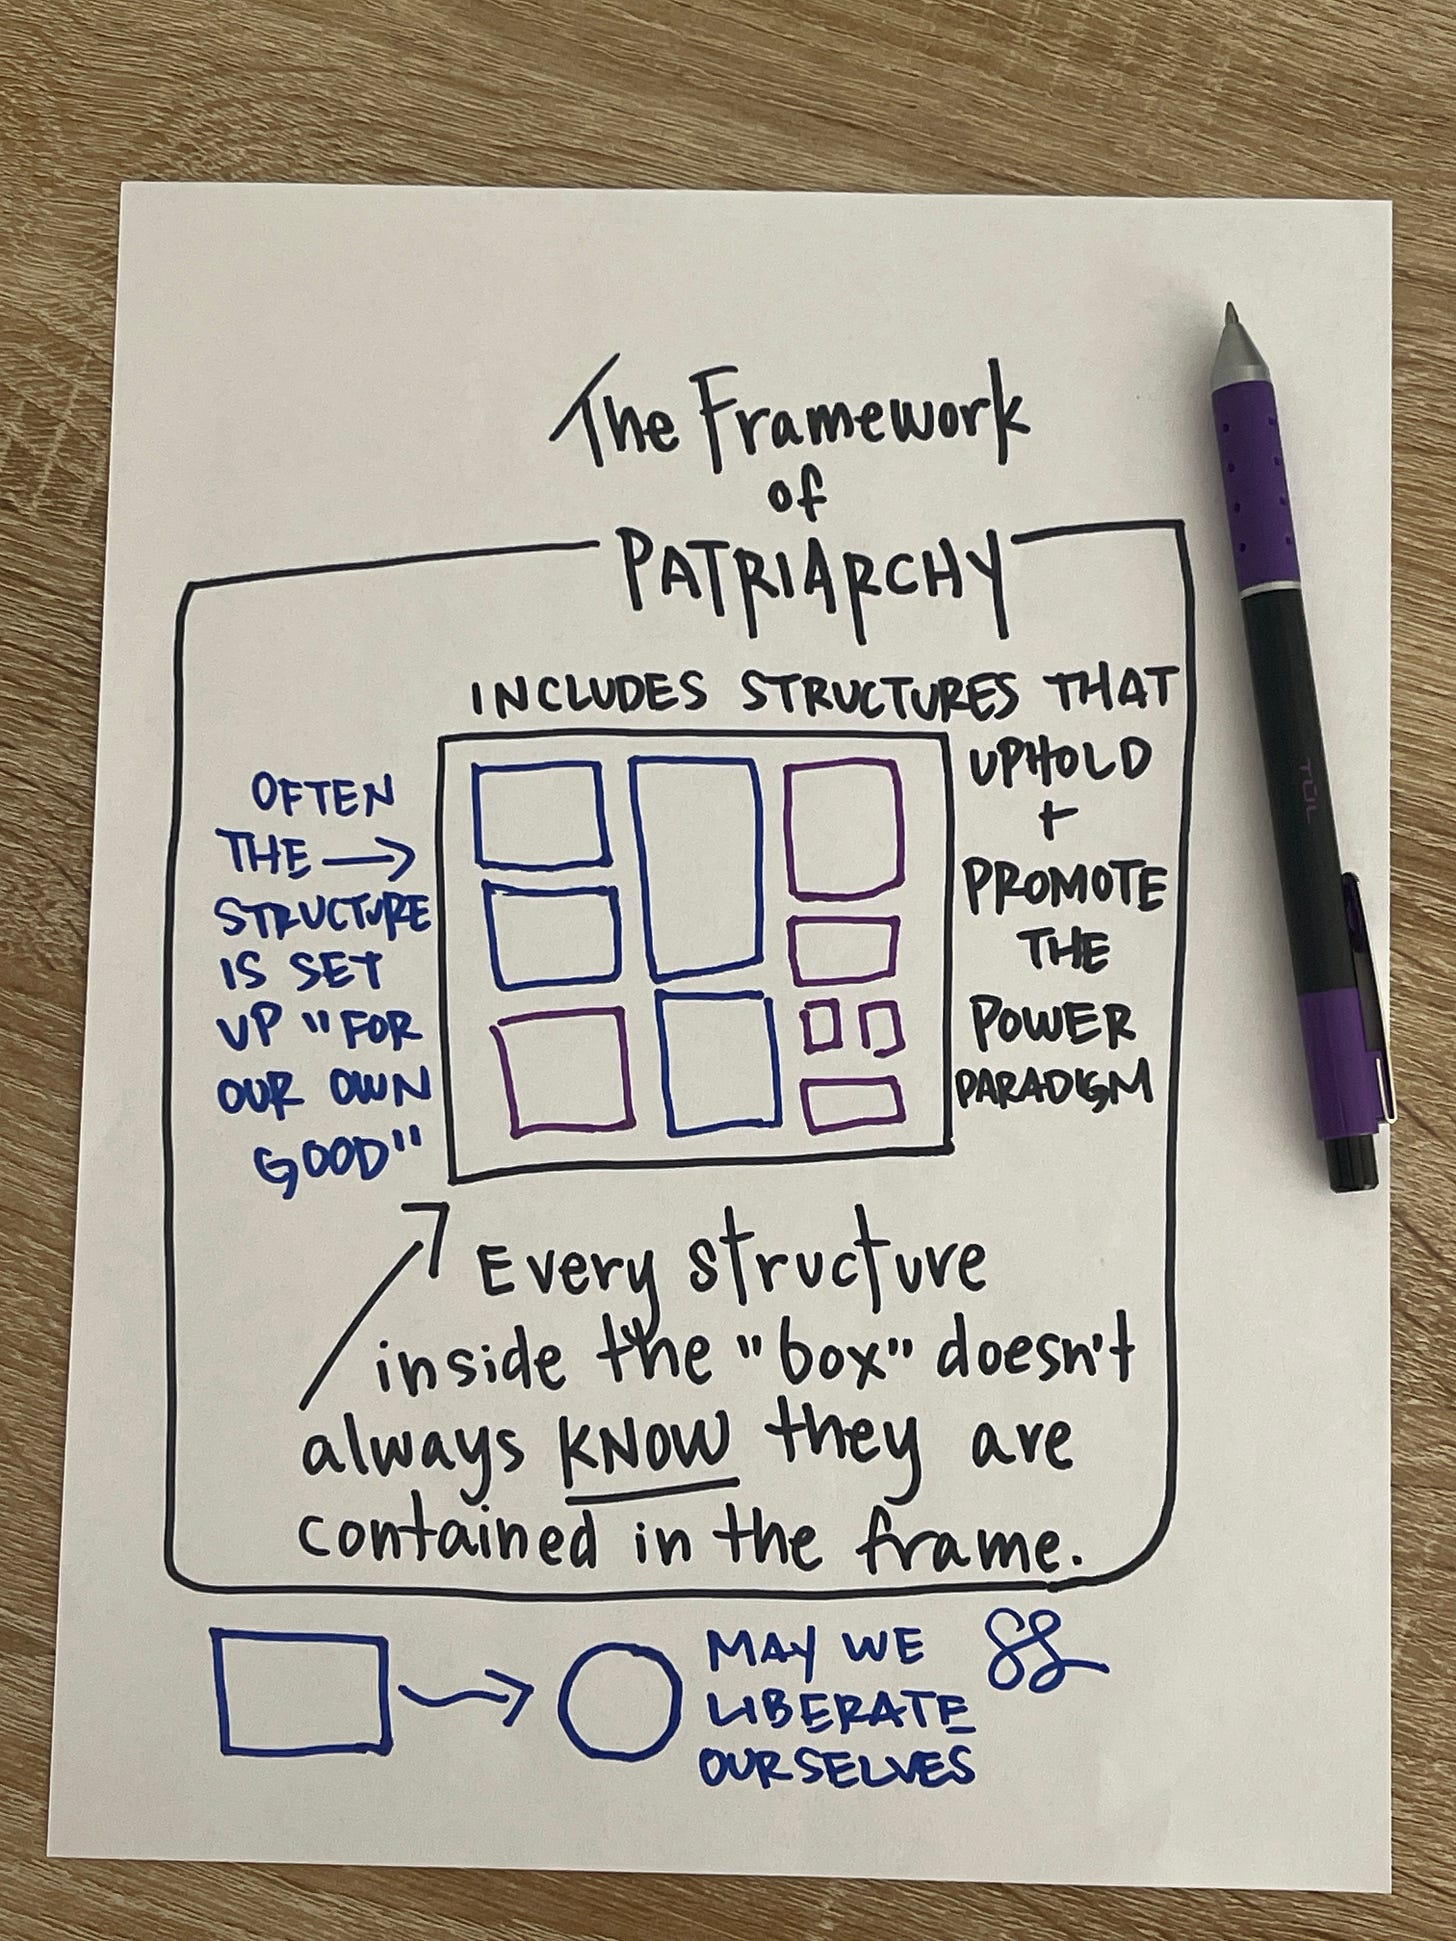 The Framework
of
PATRIARCHY
INCLUDES STRUCTURES THAT
UPHOLD
+
PROMOTE
THE
POWER
PARADIGM
OFTEN
THE →
STRUCTURE
IS SET
UP "FOR
OUR OWN
GOOD"
Every structure
inside the "box" doesn't
always KNOW they are
contained in the frame.
MAY WE
LIBERATE
OURSELVES
SS
TUL